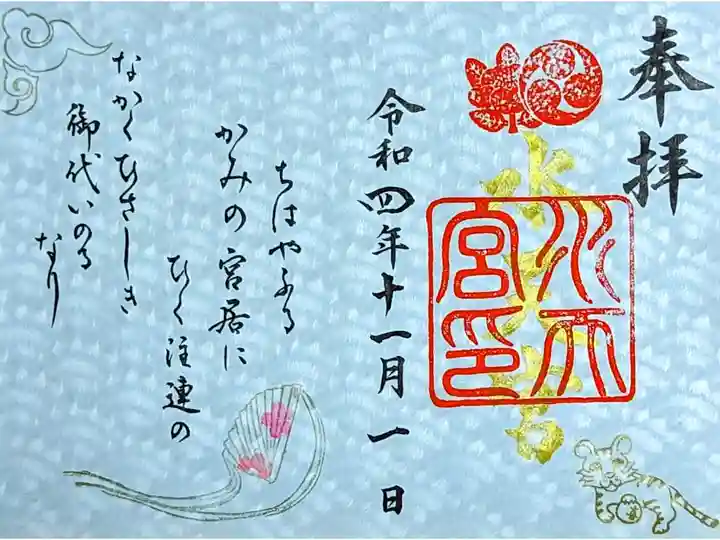 奉拝
水天宮
水天
宮印
令和四年十一月一日
ちはやふる
かみの宮居に
ひく注連の
なかくひさしき
御代いのる
なり